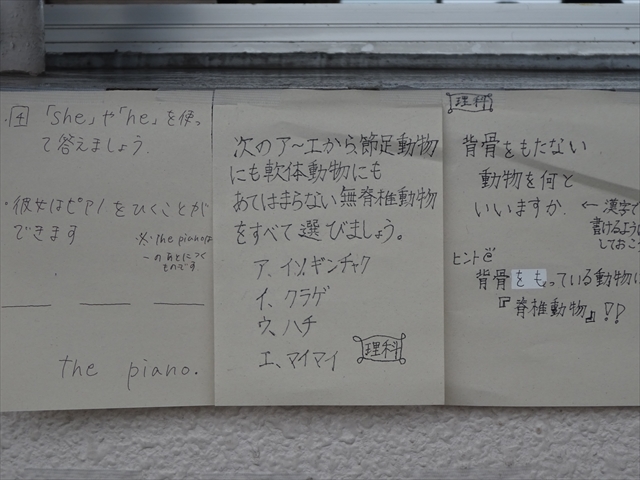 ・4 「she」や「he」を使っ
て答えましょう.
・彼女はピアノをひくことが
できます
※ the pianoは
ーのあとにつく
ものです
the piano.
次のア～エから節足動物
にも軟体動物にも
あてはまらない無脊椎動物
をすべて選びましょう。
ア、イソギンチャク
イ、クラゲ
ウ、ハチ
エ、マイマイ
理科
理科
背骨をもたない
動物を何と
いいますか.
← 漢字で
書けるように
しておこう
ヒント
背骨をもっている動物は
『脊椎動物』!!